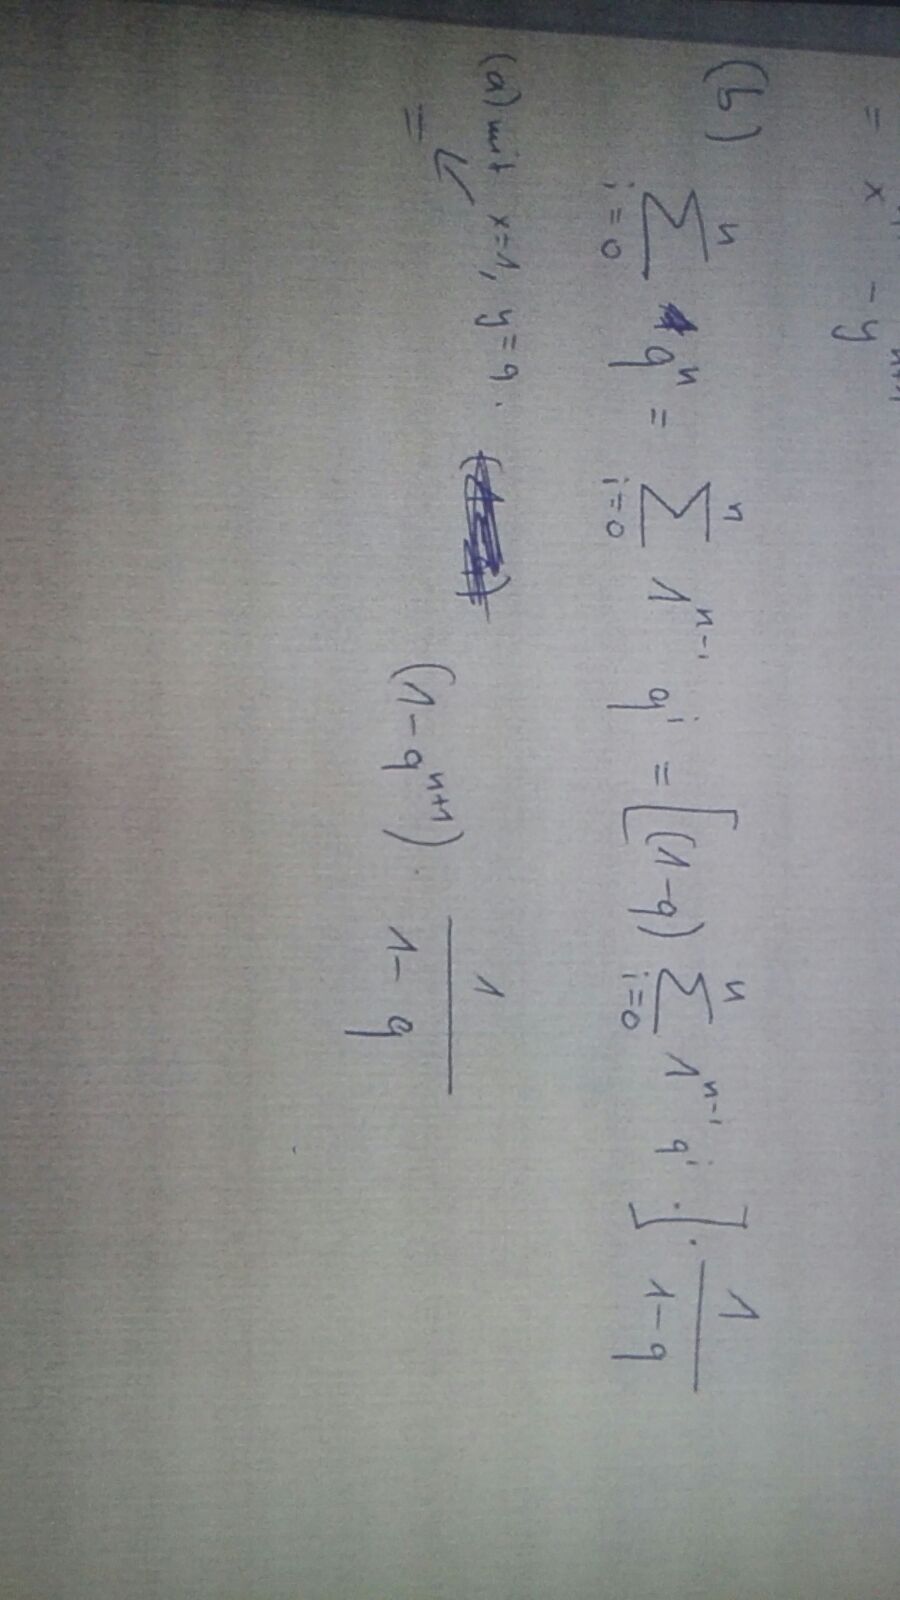 = x^{n+1} - y^{n+1}
(b) \sum_{i=0}^{n} q^n = \sum_{i=0}^{n} 1^{n-i} q^i = [(1-q) \sum_{i=0}^{n} 1^{n-i} q^i] \cdot \frac{1}{1-q}
(a) mit x=1, y=q.
= (1-q^{n+1}) \cdot \frac{1}{1-q}